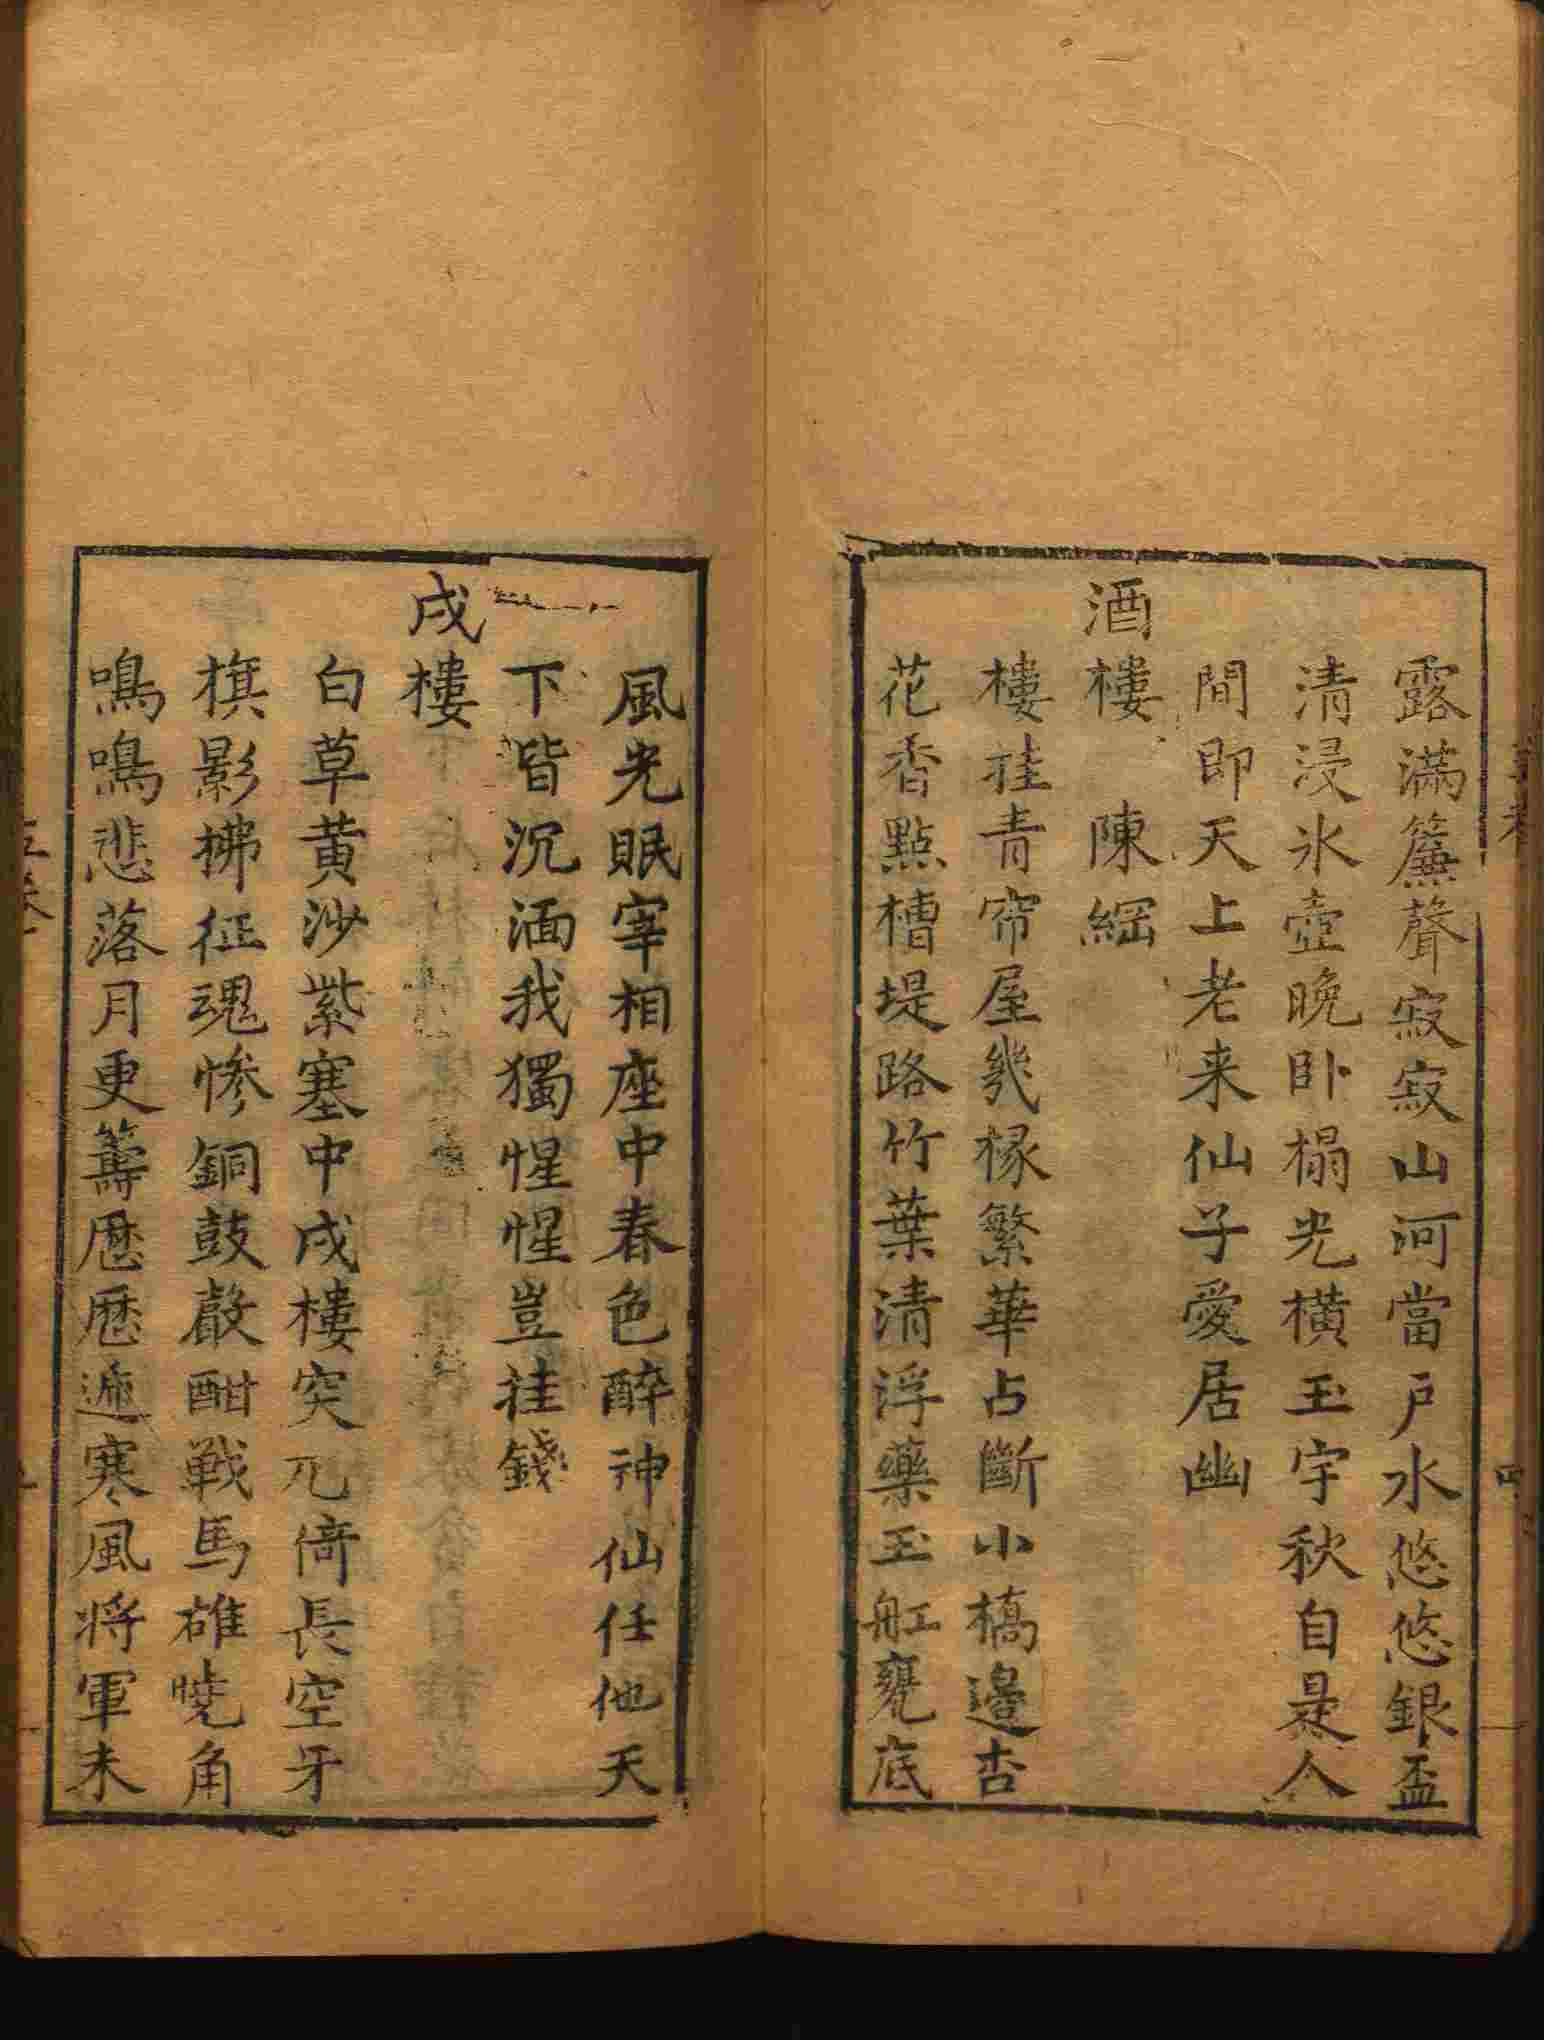 露滿簾聲寂寂山河當戶水悠悠銀盃
清浸氷壺晚卧榻光橫玉宇秋自是人
間即天上老来仙子愛居幽
酒樓　陳綱
樓挂青帘屋幾椽繁華占斷小橋邊杏
花香點槽堤路竹葉清浮藥玉舡甕底
風光眠宰相座中春色醉神仙任他天
下皆沉湎我獨惺惺豈挂錢
戍樓
白草黄沙紫塞中戍樓突兀倚長空牙
旗影拂征魂慘銅鼓聲酣戦馬雄曉角
鳴鳴悲落月更籌歷歷遞寒風将軍未
四